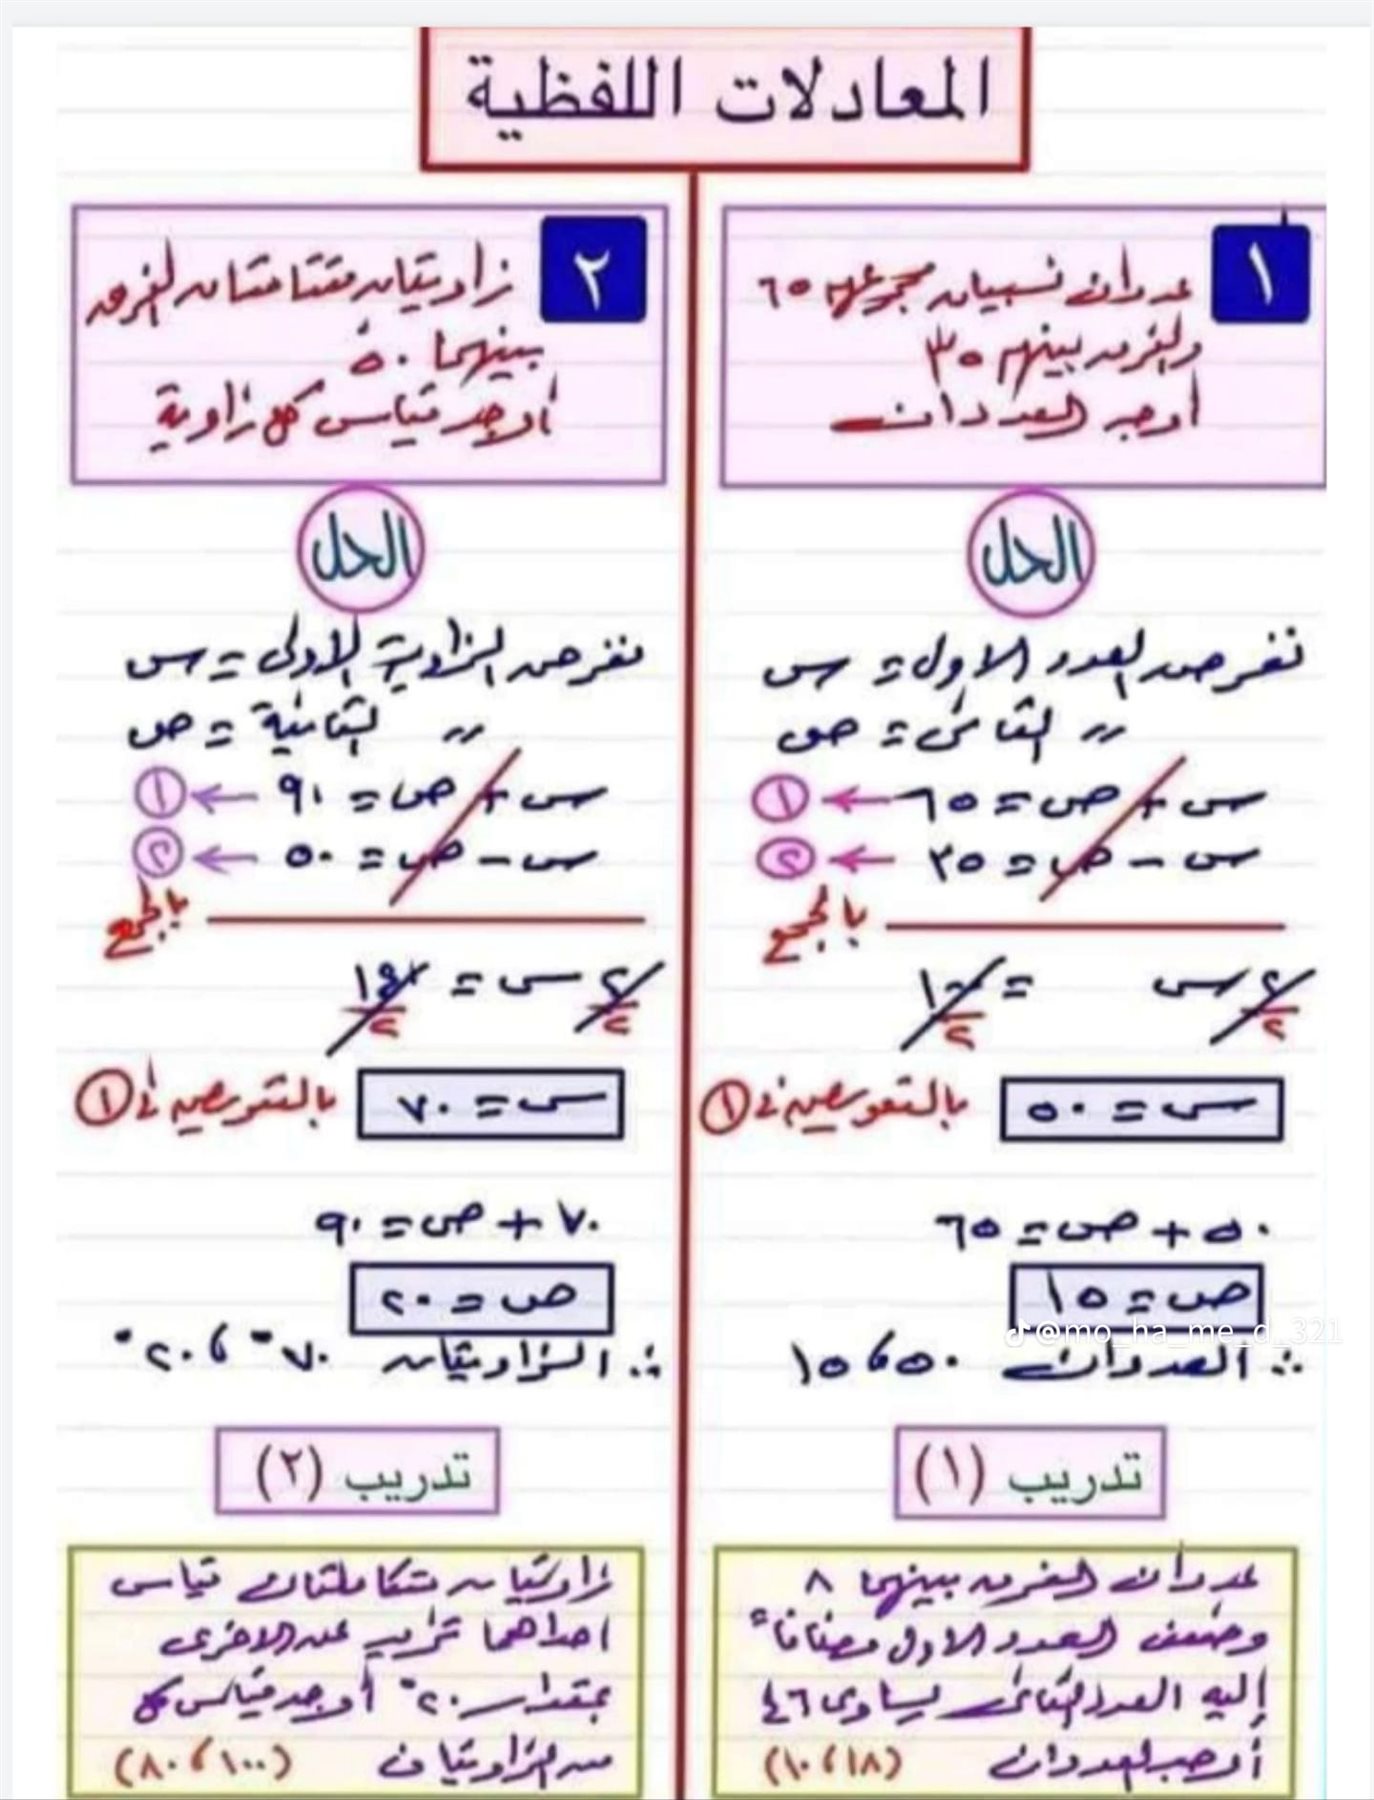 المعادلات اللفظية
١
عددان نسبيان مجموعهم ٦٥
والفرق بينهم ٣٥
أوجد العددان
الحل
نفرض العدد الاول = س
〃 الثانى = ص
س + ص = ٦٥ ← ①
س - ص = ٣٥ ← ②
بالجمع
٢ س / ٢ = ١٠٠ / ٢
س = ٥٠ بالتعويض فى ①
٥٠ + ص = ٦٥
ص = ١٥
@mo_ha_me_d_321
∴ العددان ٥٠ ، ١٥
تدريب (١)
عددان الفرق بينهما ٨
وضعف العدد الاول مضافاً
إليه العدد الثانى يساوى ٤٦
أوجد العددان (١٨ ، ١٠)
٢
زاويتان متتامتان الفرق
بينهما ٥٠°
أوجد قياس كل زاوية
الحل
نفرض الزاوية الاولى = س
〃 الثانية = ص
س + ص = ٩٠ ← ①
س - ص = ٥٠ ← ②
بالجمع
٢ س / ٢ = ١٤٠ / ٢
س = ٧٠ بالتعويض فى ①
٧٠ + ص = ٩٠
ص = ٢٠
∴ الزاويتان ٧٠° ، ٢٠°
تدريب (٢)
زاويتان متكاملتان قياس
احداهما تزيد عن الاخرى
بمقدار ٢٠° أوجد قياس كل
من الزاويتان (١٠٠ ، ٨٠)